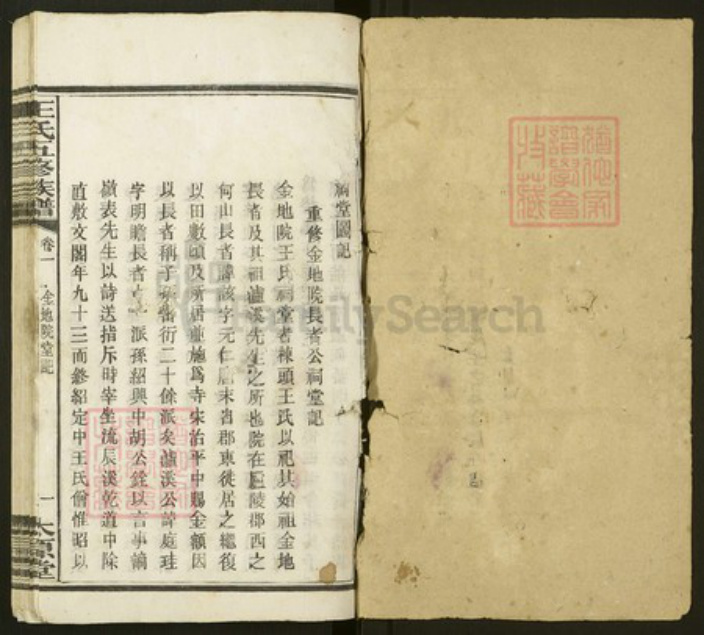 祠堂圖記
重修金地院長者公祠堂記
金地院王氏祠堂者棟頭王氏以祀其始祖金地
長者及其祖瀘溪先生之所也院在廬陵郡西之
何山長者諱該字元仁唐末自郡東徙居之繼復
以田數頃及所居並施爲寺宋治平中賜金額因
以長者稱子孫蕃衍二十餘派矣瀘溪公諱庭珪
字明瞻長者派孫紹興中胡公銓以言事謫
嶺表先生以詩送指斥時宰坐流辰溪乾道中除
直敷文閣年九十三而終紹定中王氏僧惟昭以
王氏五修族譜
卷一
金地院堂記
一
太原堂
FamilySearch